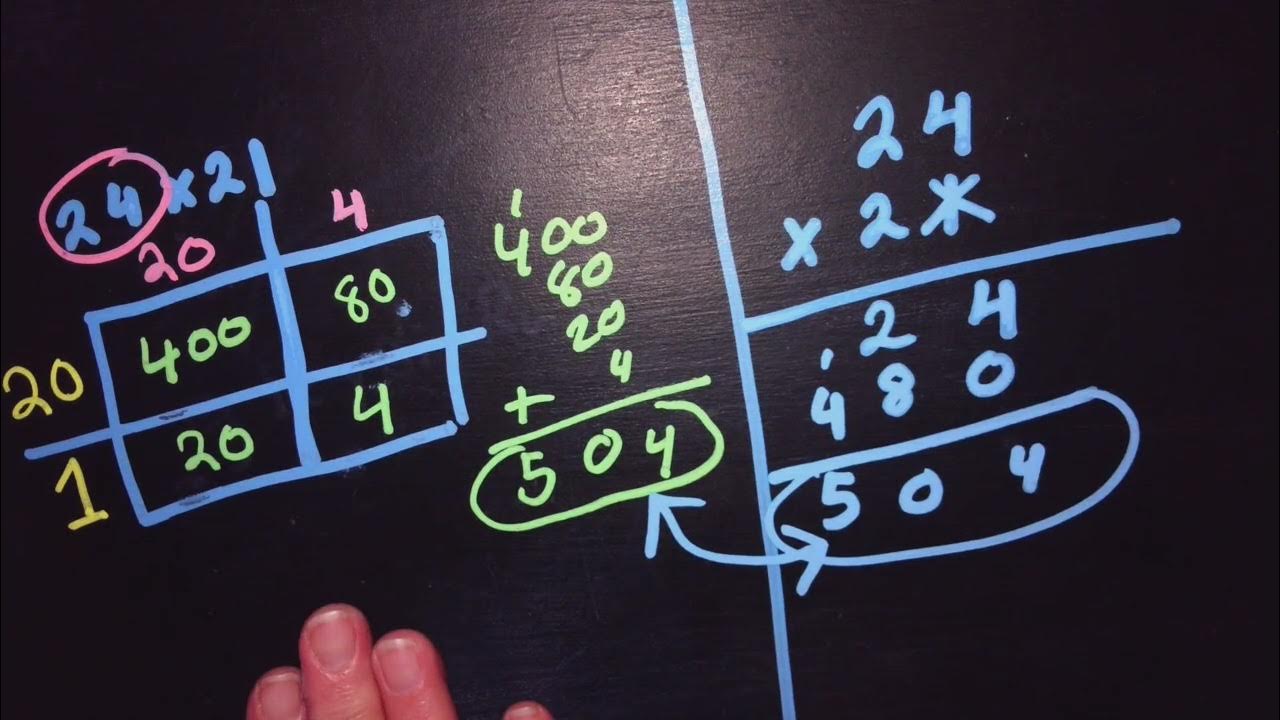 24 x 21
20 4
20 400 80
1 20 4
400
80
20
4
+
504
24
x 2
24
1
480
504